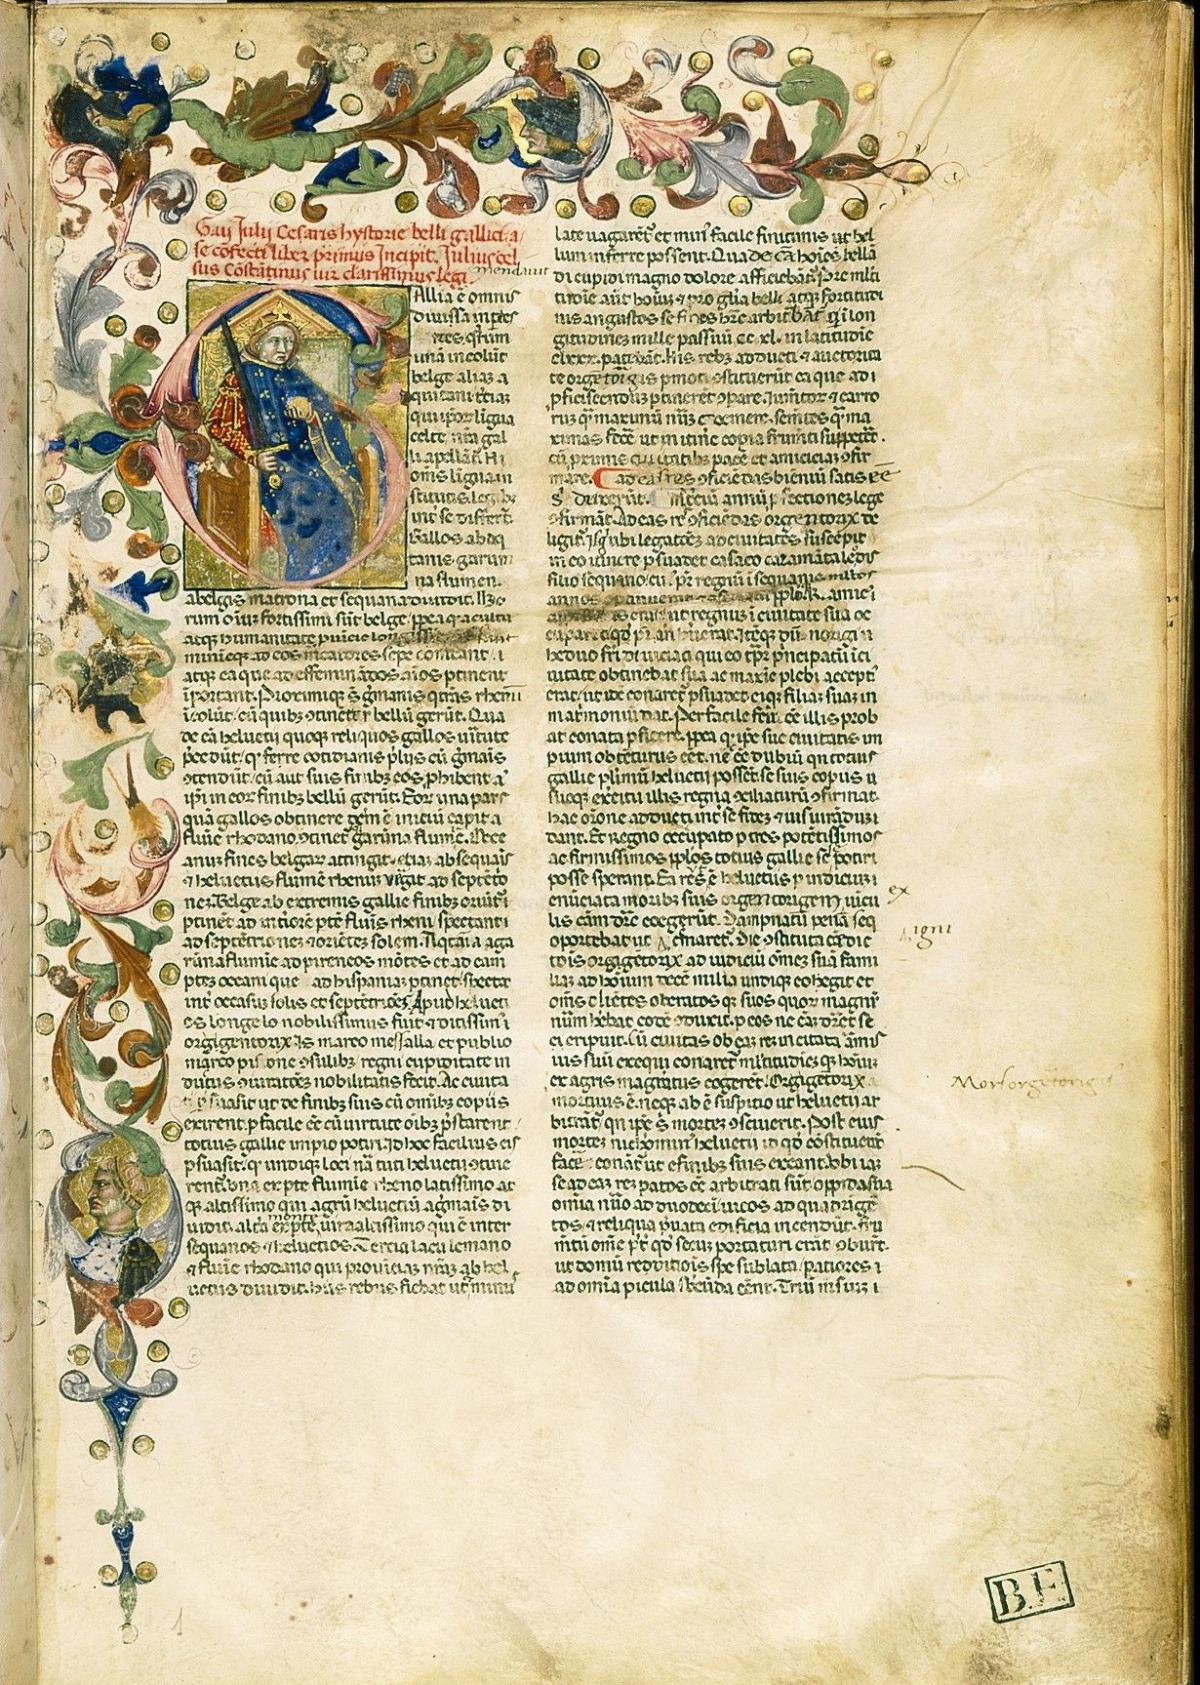 Gaii Julii Cesaris hystorie belli gallici a
se cōfecti liber primus Incipit. Julius cel
sus Cōstātinus uir clarissimus legi
mendauit
Allia ē omnis
diuissa in ptes
tres qrum
unā incolūt
belge aliaz a
quitani t̄ciaz
qui ip̄or līgua
celte nr̄a gal
li apelāt̄. Hi
om̄s līgua in
stitutis legibz
int̄ se differt̄.
Gallos ab aq
tanis garum
na flumen.
a belgis matrona et sequana diuidit. Hoz
rum oīuz fortissimi sūt belge ppea q a cultu
atq humanitate puīcie
minieq ad eos mcatores sepe comeant. i
atq ea que ad effeminādos aīos ptinent
īportant. Proximiq s̄ ḡmanis q trās rhenū
īcolūt. cū quibz ↄtinēter bellū gerūt. Qua
de cā heluetii quoq reliquos gallos uīrtute
p̄cedūt. q ferre cotidianis p̄liis cū ḡmāis
ↄtendūt. cū aut suis finibz eos phibent a
ip̄i in eoꝝ finibz bellū gerūt. Eoꝝ una pars
quā gallos obtinere initiū capit a
fluīe rhodano ↄtinet̄ garūna flumīe. Occe
anuz fines belgaꝝ attingit. etiaz ab sequāis
⁊ heluetiis flumē rhenuz uergit ad septēto
nez. Belge ab extremis gallie finibz oriūt̄
ptinēt ad intiorē ptē fluīs rheni spectant i
ad septētrionez ⁊ oriētez solem. Aqtāia a ga
rūna flumīe ad pireneos mōtes et ad eam
ptez occeani que ad hispaniaz ptinet. spectat
int̄ occasuz solis et septētriōez. Apud helueti
os longe lo nobilissimus fuit ⁊ ditissim i
orgigentorix. Is marco messalla et publio
marco pisone ↄsulibz regni cupiditate in
ductus ↄiuratōez nobilitatis fecit. Ac ciuita
ti psuasit ut de finibz suis cū omībz copiis
exirent. pfacile ēe cū uirtute oībz p̄starent
totius gallie impio potiri. id hoc facilius eis
psuasit. q undiq loci nā tuti heluetii ↄtine
rent̄. Una ex pte flumīe rheno latissimo at
q altissimo qui agrū heluetiū a ḡmāis di
uidit. alt̄a ex pte iura altissimo qui ē inter
sequanos ⁊ heluetios. Tercia lacu lemano
⁊ fluīe rhodano qui prouiciaz nr̄az ab hel
uetiis diuidit. His rebus fiebat ut minus
late uagarēt̄ et min facile finitimis ut bel
lum inferre possent. Qua de cā hoīes bellā
di cupidi magno dolore afficiebāt̄. Pro mlti
tudīe aūt hoīuz ⁊ pro gl̄ia belli atq fortitudi
nis angustos se fines hr̄e arbitrābāt̄ qi ī lon
gitudinez mille passuū cc xl. in latitudie
clxxx. patebāt. His rebz adducti ⁊ auctorita
te orgetorigis pmoti ↄstituerūt ea que ad i
pficiscenduz ptinerēt ↄpare. Iumētoꝝ ⁊ carro
ruz q maximū
ximas facē ut in itiē copia frumēti suppetēt.
cū primis ciuitatibz pacē et amiciciaz ↄfir
mare. ad eas res ↄficiēdas bieniū satis
duxerūt. t̄ciū annū p̄fectionez lege
ↄfirmāt. Ad eas res ↄficiēdas orgentorix de
ligit̄. Is qi ubi legatōez ad ciuitates suscepit
in eo itinere psuadet casaco cazamātaledis
filio sequano. cui pr̄ regnū ī sequanis multos
annos
ut regnuz ī ciuitate sua oc
cuparet qd pr̄ an habuerat. Itēq dūnorigi n
heduo fr̄i diuiciaci qui eo tp̄r p̄ncipatū ī ci
uitate obtinebat suā ac maxīe plebi accept
erat. ut idē conaret̄ psuadet eiq filiaz suaz in
matrmoniū dat. Perfacile fcū ēe illis prob
at conata pficere. ppea q ip̄e sue ciuitatis im
pium obtēturus eēt. nē ēe dubiū qn totius
gallie plīmū heluetii possēt. se suis copiis s
suoq exēitu illis regna ↄciliaturū ↄfirmat.
hac oīone adducti int̄ se fidez ⁊ iusiurāduz i
dant. Et regno occupato p tres potētissimos
ac firmissimos pplos totius gallie se potiri
posse sperant. Ea res ē heluetiis p indiciuz i
enūciata moribz suis orgentorigem
lis cām dr̄e coegerūt. Dampnatū penā seq
oportebat ut cremaret̄. Die ↄstituta cāe dic
tōis orgigētorix ad iudiciū om̄ez suā fami
liaz ad hoīum decē milia undiq cohegit et
om̄s cliētes oberatos q suos quoꝝ magnū
nūm hēbat eodē ↄduxit. p eos ne cāz dr̄et se
eripuit. Cū ciuitas ob eaz rez incitata armis
ius suū exequi conaret̄ mltitudiēq hoīuz
ex agris magratus cogerēt. Orgigētorix
mortuus ē. neq ab ē suspitio ut heluetii ar
bitrāt̄ qn ip̄e s̄ mortez ↄsciuerit. Post eius
mortez nichomin heluetii id qd cōstituerāt
facē conāt̄ ut e finibz suis exeant. Ubi iaz
se ad eaz rez patos ēe arbitrati sūt oppida sua
omīa nūo ad duodecī uicos ad quadrīgē
tos ⁊ reliqua p̄uata edificia incendūt. fru
mtū omē p̄t qd secuz portaturi erāt ↄburūt.
ut domū reditiōis spe sublata patiores i
ad omīa picula subeūda eēnt. Triū msiuz i
ex
igni
Mors orgētorigis
B.F.
1